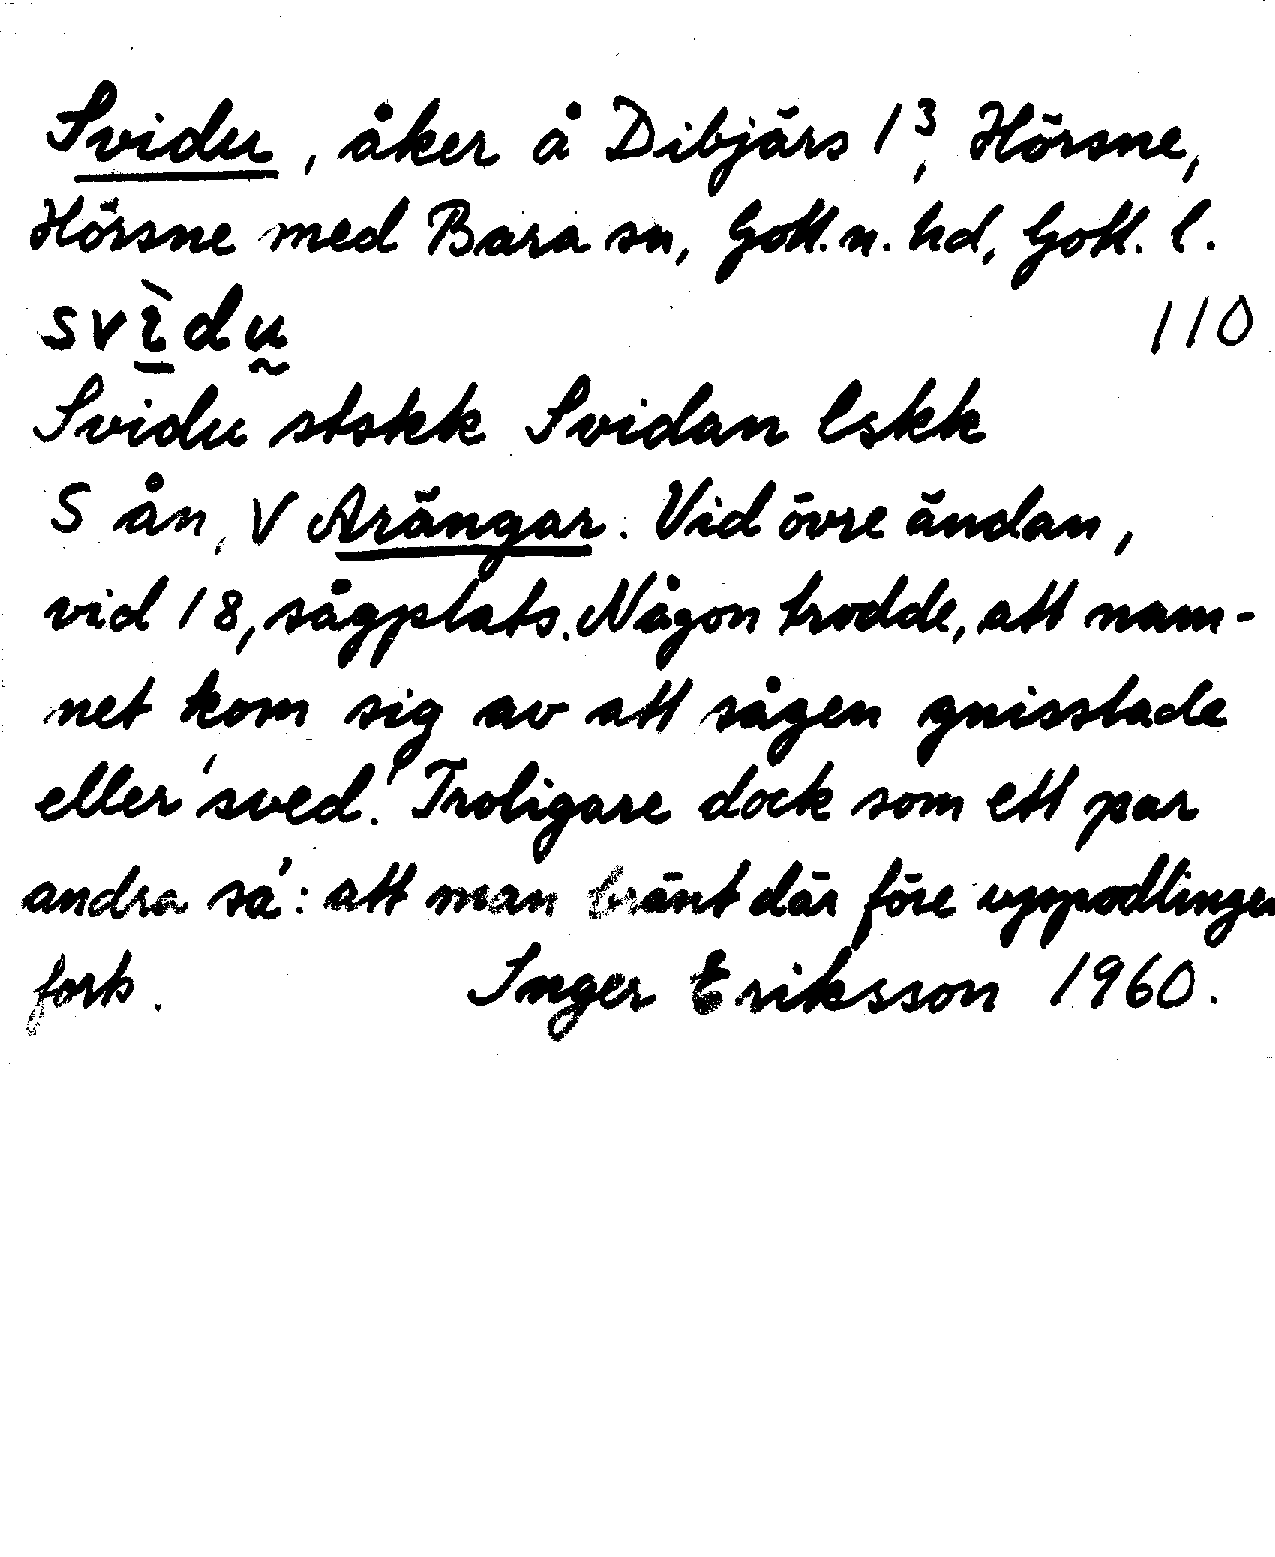 Svidu, åker å Dibjärs 1³, Hörsne,
Hörsne med Bara sn, Gotl. n. hd, Gotl. l.
svìdṵ 110
Svidu stskk Svidan lskk
S ån, V Arängar. Vid övre ändan,
vid 18, sågplats. Någon trodde, att nam-
net kom sig av att sågen gnisslade
eller 'sved'. Troligare dock som ett par
andra sa': att man bränt där före uppodlingen
forts. Inger Eriksson 1960.